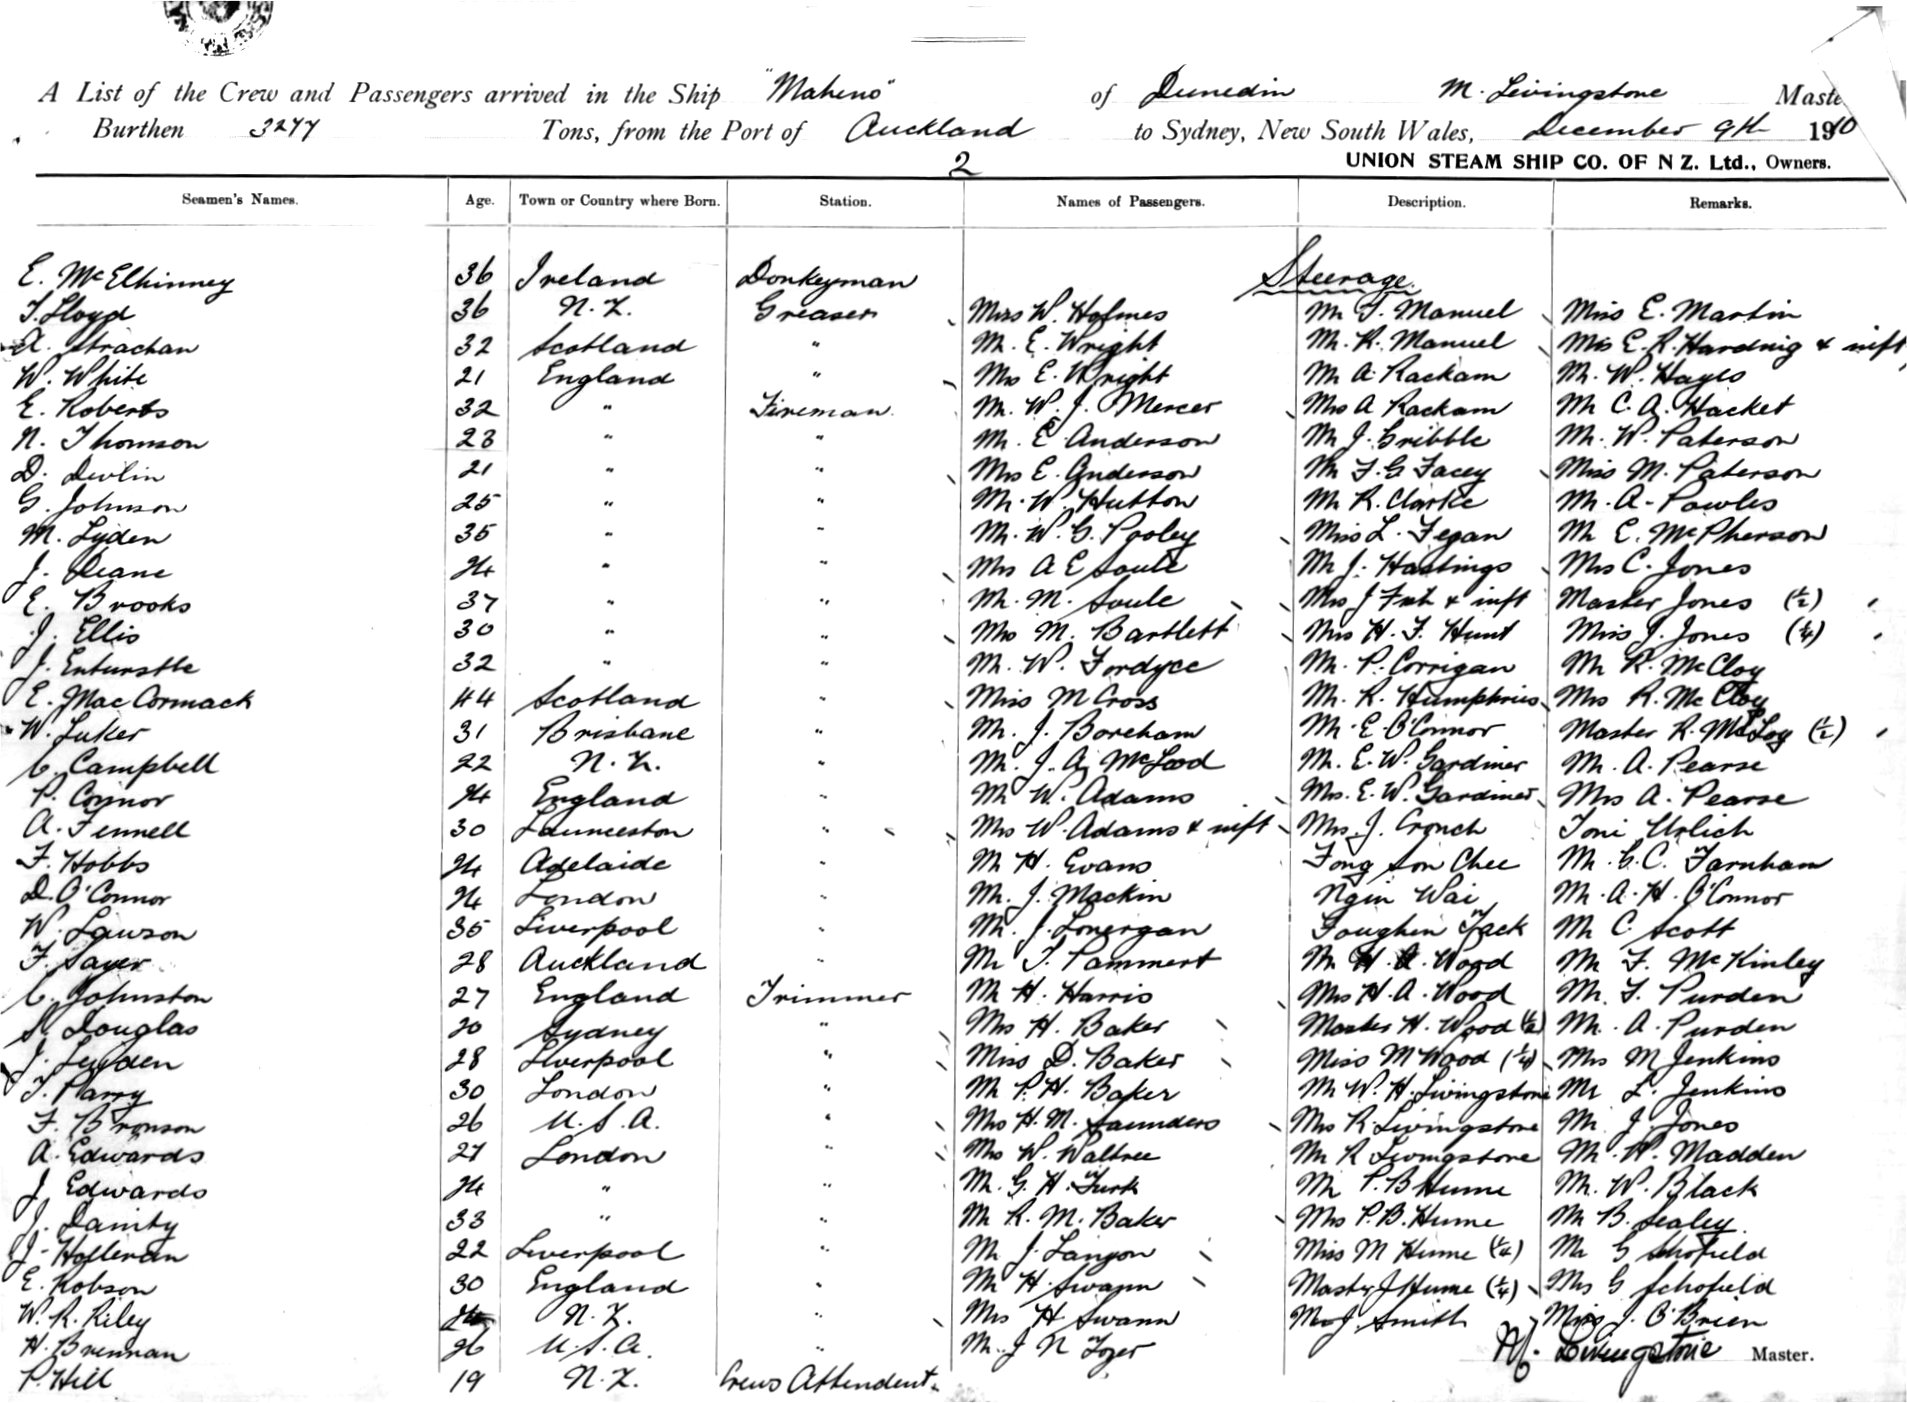 A List of the Crew and Passengers arrived in the Ship "Maheno" of Dunedin M. Livingstone Maste
Burthen 3277 Tons, from the Port of Auckland to Sydney, New South Wales, December 9th 1910
2 UNION STEAM SHIP CO. OF N Z. Ltd., Owners.
Seamen's Names. Age. Town or Country where Born. Station. Names of Passengers. Description. Remarks.
E. McElhinney 36 Ireland Donkeyman Steerage.
T. Lloyd 36 N.Z. Greaser Mrs W. Holmes Mr T. Manuel Miss E. Martin
A. Strachan 32 Scotland " Mr. E. Wright Mr. R. Manuel Mrs E. R. Harding & inft
W. White 21 England " Mrs E. Wright Mr A. Rackam Mr. W. Hayes
E. Roberts 32 " Fireman Mr. W. J. Mercer Mrs A Rackam Mr C. A. Hacket
N. Thomson 23 " " Mr. E Anderson Mr J. Gribble Mr. W. Paterson
D. Devlin 21 " " Mrs E. Anderson Mr F. G Facey Miss M. Paterson
G. Johnson 25 " " Mr. W. Hutton Mr R. Clarke Mr. A. Powles
M. Lyden 35 " " Mr. W. G. Pooley Miss L. Fegan Mr E. McPherson
J. Deane 24 " " Mrs A E Soule Mr J. Hastings Mrs C. Jones
E. Brooks 37 " " Mr. M. Soule Mrs J & inft Master Jones (½)
J. Ellis 30 " " Mrs M. Bartlett Mrs H. F. Hunt Miss J. Jones (¼)
J. Entwistle 32 " " Mr. W. Fordyce Mr. P. Corrigan Mr R. McCloy
E. MacCormack 44 Scotland " Miss M Cross Mr. R. Humphries Mrs R. McCloy
W. Luker 31 Brisbane " Mr. J. Boreham Mr. E. O'Connor Master R. McCloy (½)
C. Campbell 22 N.Z. " Mr. J. A. McLeod Mr. E. W. Gardiner Mr. A. Pearse
P. Connor 24 England " Mr W. Adams Mrs. E. W. Gardiner Mrs A. Pearse
A. Fennell 30 Launceston " Mrs W. Adams & inft Mrs. J. Crouch Toni Urlich
F. Hobbs 24 Adelaide " Mr H. Evans Fong Son Chee Mr. G. C. Farnham
D. O'Connor 24 London " Mr. J. Mackin Ngin Wai Mr. A. H. O'Connor
W. Lawson 35 Liverpool " Mr. J. Lonergan Jack Mr C. Scott
F. Sayer 28 Auckland " Mr T. Pammert Mr H. A. Wood Mr F. McKinley
C. Johnston 27 England Trimmer Mr H. Harris Mrs H. A. Wood Mr. F. Purden
S. Douglas 20 Sydney " Mrs H. Baker Master H. Wood (½) Mr. A. Purden
J. Leyden 28 Liverpool " Miss D. Baker Miss M Wood (¼) Mrs M Jenkins
T. Parry 30 London " Mr P. H. Baker Mr W. H. Livingstone Mr L. Jenkins
F. Bronson 26 U.S.A. " Mrs H. M. Saunders Mrs R. Livingstone Mr. J. Jones
A. Edwards 27 London " Mrs W. Waltree Mr R Livingstone Mr. H. Madden
J. Edwards 24 " " Mr. G. H. Turk Mr P. B Hume Mr. W. Black
J. Dainty 33 " " Mr R. M. Baker Mrs P. B. Hume Mr B. Sealey.
J. Holleran 22 Liverpool " Mr J. Lanyon Miss M Hume (¼) Mr G Schofield
E. Robson 30 England " Mr H Swann Master J Hume (¼) Mrs G Schofield
W. R. Riley 24 N.Z. " Mrs H Swann J. Smith Miss J. O'Brien
H. Brennan 26 U.S.A. " Mr. J N Tozer M. Livingstone Master.
P. Hill 19 N.Z. Crews Attendent.